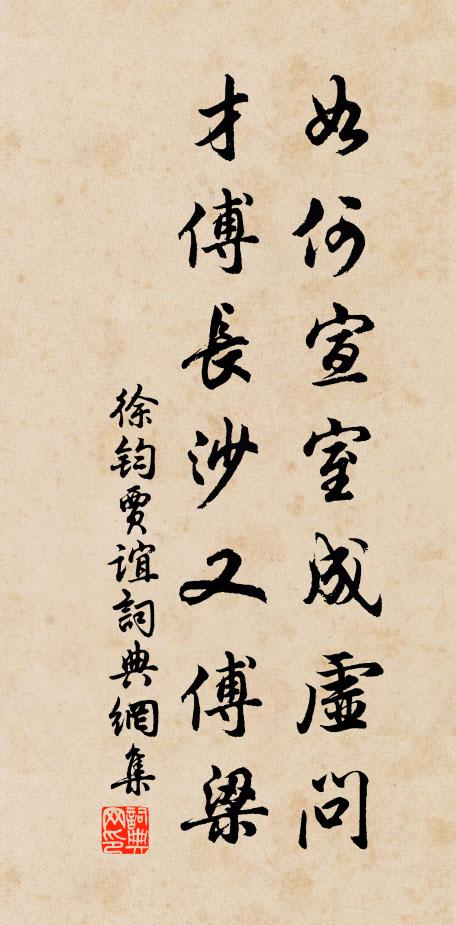 如何宣室成虛問
才傅長沙又傅梁
徐鈞賈誼詞典網集
詞典网印